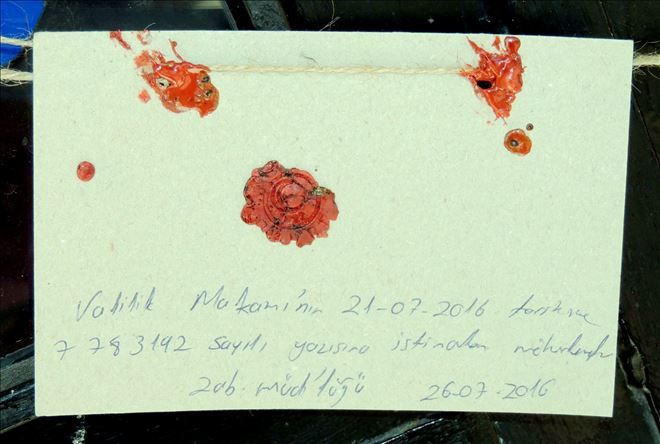 Valilik Makamı'nın 21-07-2016 tarih ve
7783192 sayılı yazısına istinaden mühürlendi
Zab. müdürlüğü 26-07-2016